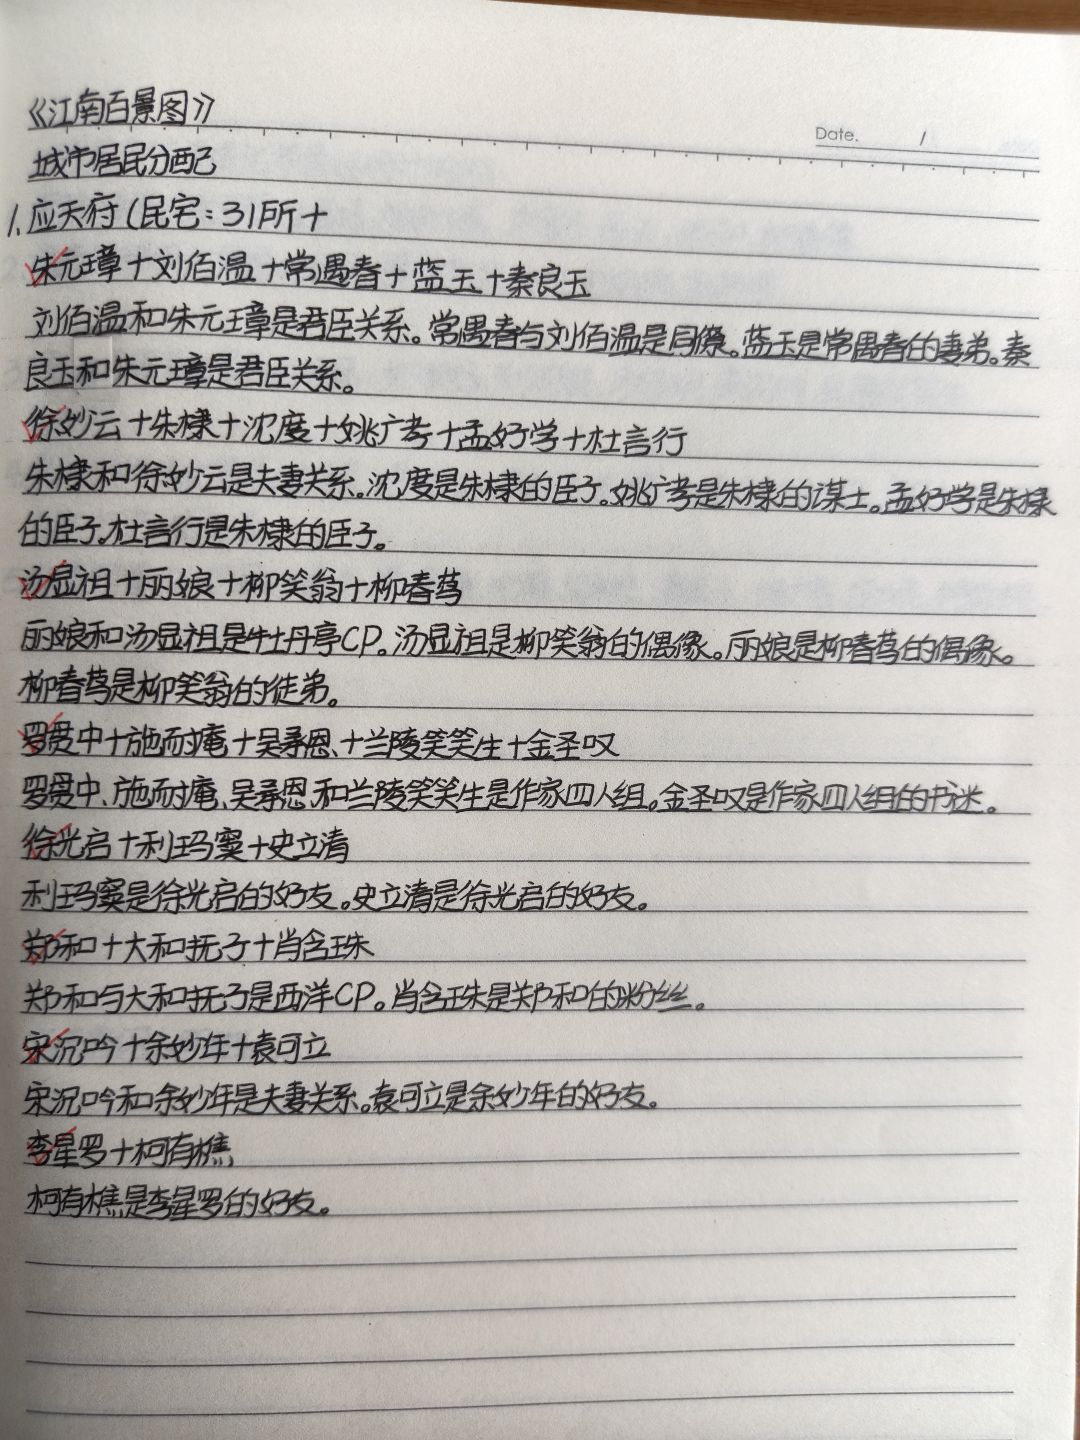 《江南百景图》
Date. /
城市居民分配
1. 应天府（民宅：31所十
朱元璋十刘伯温十常遇春十蓝玉十秦良玉
刘伯温和朱元璋是君臣关系。常遇春与刘伯温是同僚。蓝玉是常遇春的妻弟。秦
良玉和朱元璋是君臣关系。
徐妙云十朱棣十沈度十姚广孝十孟好学十杜言行
朱棣和徐妙云是夫妻关系。沈度是朱棣的臣子。姚广孝是朱棣的谋士。孟好学是朱棣
的臣子。杜言行是朱棣的臣子。
汤显祖十丽娘十柳笑翁十柳春莺
丽娘和汤显祖是牡丹亭CP。汤显祖是柳笑翁的偶像。丽娘是柳春莺的偶像。
柳春莺是柳笑翁的徒弟。
罗贯中十施耐庵十吴承恩、十兰陵笑笑生十金圣叹
罗贯中、施耐庵、吴承恩、和兰陵笑笑生是作家四人组。金圣叹是作家四人组的书迷。
徐光启十利玛窦十史立清
利玛窦是徐光启的好友。史立清是徐光启的好友。
郑和十大和抚子十肖含珠
郑和与大和抚子是西洋CP。肖含珠是郑和的粉丝。
宋沉吟十余妙年十袁可立
宋沉吟和余妙年是夫妻关系。袁可立是余妙年的好友。
李星罗十柯有樵
柯有樵是李星罗的好友。